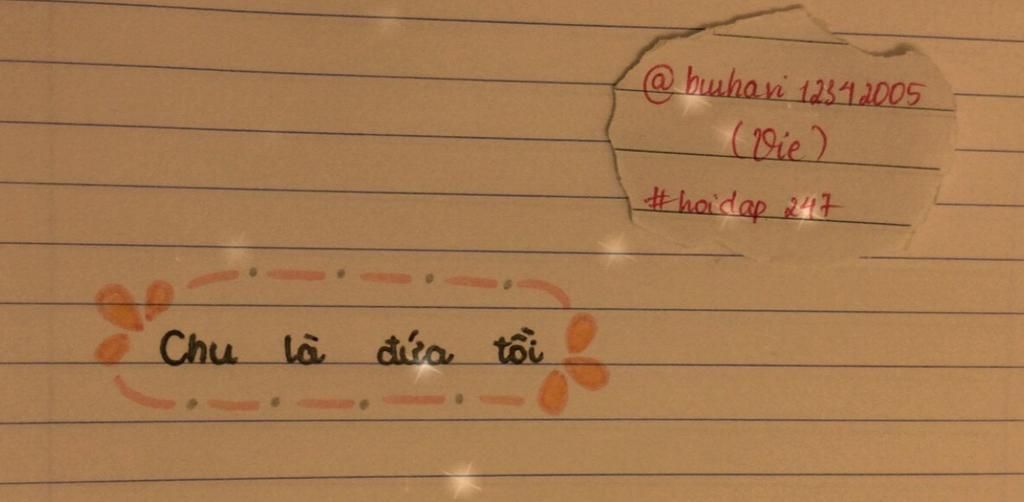 @ buihavi 12342005
(Vie)
#hoidap 247
Chu là đứa tồi